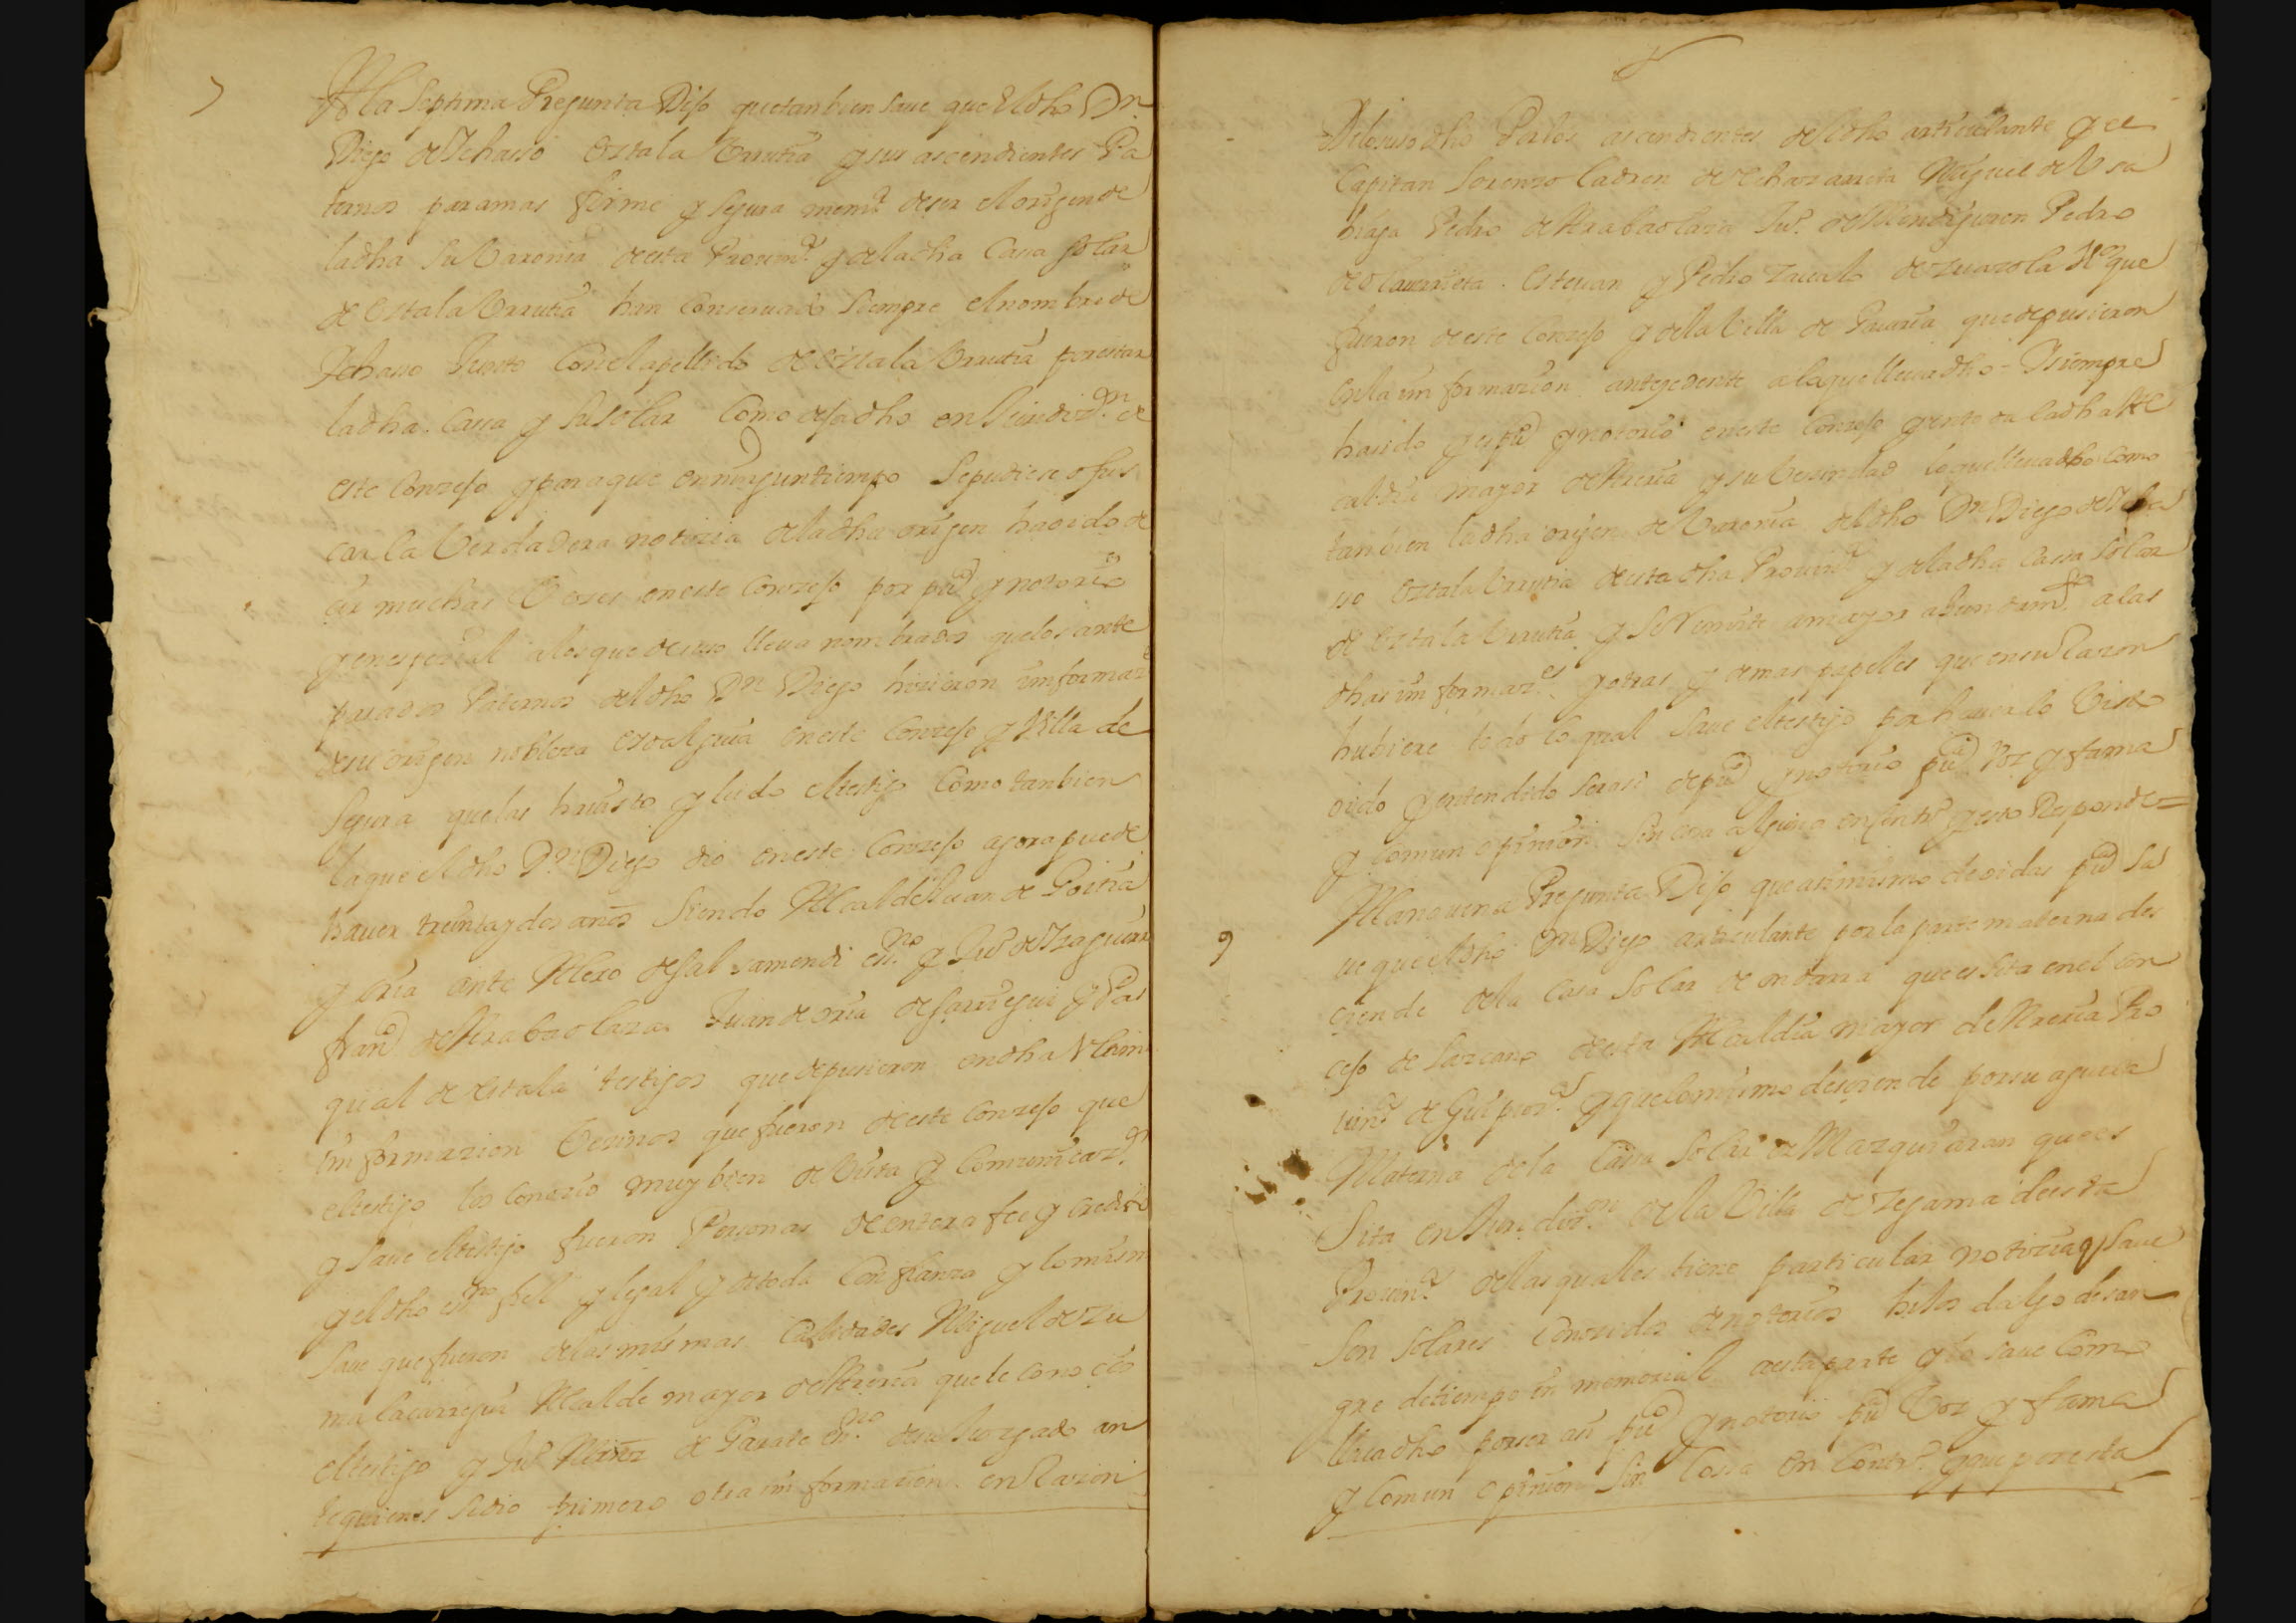 7
A la Septima Pregunta Dijo que tanbien saue que el dho Dn
Diego de Ychasso Estala Vrrutia y sus ascendientes Pa
ternos para mas firme y segura mema de ser el origen de
la dha su Varonia de esta Provina y de la dha Casa solar
de Estala Vrrutia han Conseruado siempre el nombre de
Ychasso Junto Con el apellido de Estala Vrrutia por estar
la dha Casa y su solar Como esta dho en Juridizon de
este Conzejo y para que en ningun tiempo se pudiese ofus
car la Verdadera notizia de la dha origen ha oido de
cir muchas Vezes en este Conzejo por puco y notorio
y en espezial a los que de suso lleua nombrados que los ante
pasados Paternos del dho Dn Diego hizieron informazon
de su origen nobleza e hidalguia en este Conzejo y Villa de
Segura que las ha visto y leido el testigo Como tanbien
la que el dho Dn Diego dio en este Conzejo agora puede
hauer treinta y dos años siendo Alcalde Juan de Goitia
y Oria ante Alexo de Galzamendi esno y Juo de Yzaguirre
Franco de Arabaolaza Juan de Oria de Jaureguí y Pas
qual de Estala testigos que depusieron en dha Vltima
informazion Vezinos que fueron de este Conzejo que
el testigo los Conozio muy bien de Vista y Comunicazon
y saue el testigo fueron Personas de entera fee y credito
y el dho esno fiel y legal y de toda Confianza y lo mismo
saue que fueron de las mismas Calidades Miguel de Zu
malacarregui Alcalde mayor de Areria que le conocio
el testigo y Juo Mrnz de Garate esno de su Juzgado an
te quienes se dio primero otra informazion en Razon
De lo suso dho Por los ascendientes del dho articulante y el
Capitan Lorenzo Ladron de Echazarreta Miguel de Vsa
biaga Pedro de Arabaolaza Juo de Mendiguren Pedro
de Olauarrieta Esteuan y Pedro de Zuazola Vos que
fueron de este Conzejo y de la Villa de Gauiria que depusieron
en la informazion antezedente a la que lleua dho - Y siempre
ha sido y es puco y notorio en este Conzejo y en toda la dha Al
caldia mayor de Areria y su Vezindad lo que lleua dho como
tanbien la dha origen de Varonia del dho Dn Diego de Ycha
so Estala Vrrutia de esta dha Provina y de la dha Casa Solar
de Estala Vrrutia y se Remite a mayor abundamto a las
dhas informazes y otras y demas papeles que en su Razon
hubiere todo lo qual saue el testigo por hauerlo Visto
oido y entendido ser asi de puco y notorio puca voz y fama
y comun opinion sin cosa alguna en contro y esto Responde =
9
A la nouena Pregunta Dijo que asi mismo de oidas puco sa
ue que el dho Dn Diego articulante por la parte materna des
ciende de la Casa Solar de Ondarra que es sita en el Con
cejo de Lazcano de esta Alcaldia mayor de Areria Pro
vina de Guipuzca y que lo mismo desciende por su aguela
Materna de la Casa Solar de Mazquiaran que es
Sita en Juredizon de la Villa de Zegama de esta
Provina de las quales tiene particular notizia y saue
son solares Conozidos de notorios hijos dalgo de san
gre de tiempo in memorial a esta parte y lo saue Como
lleua dho por ser asi puco y notorio puca Voz y fama
y comun opinion sin Cosa en Contro que por esta